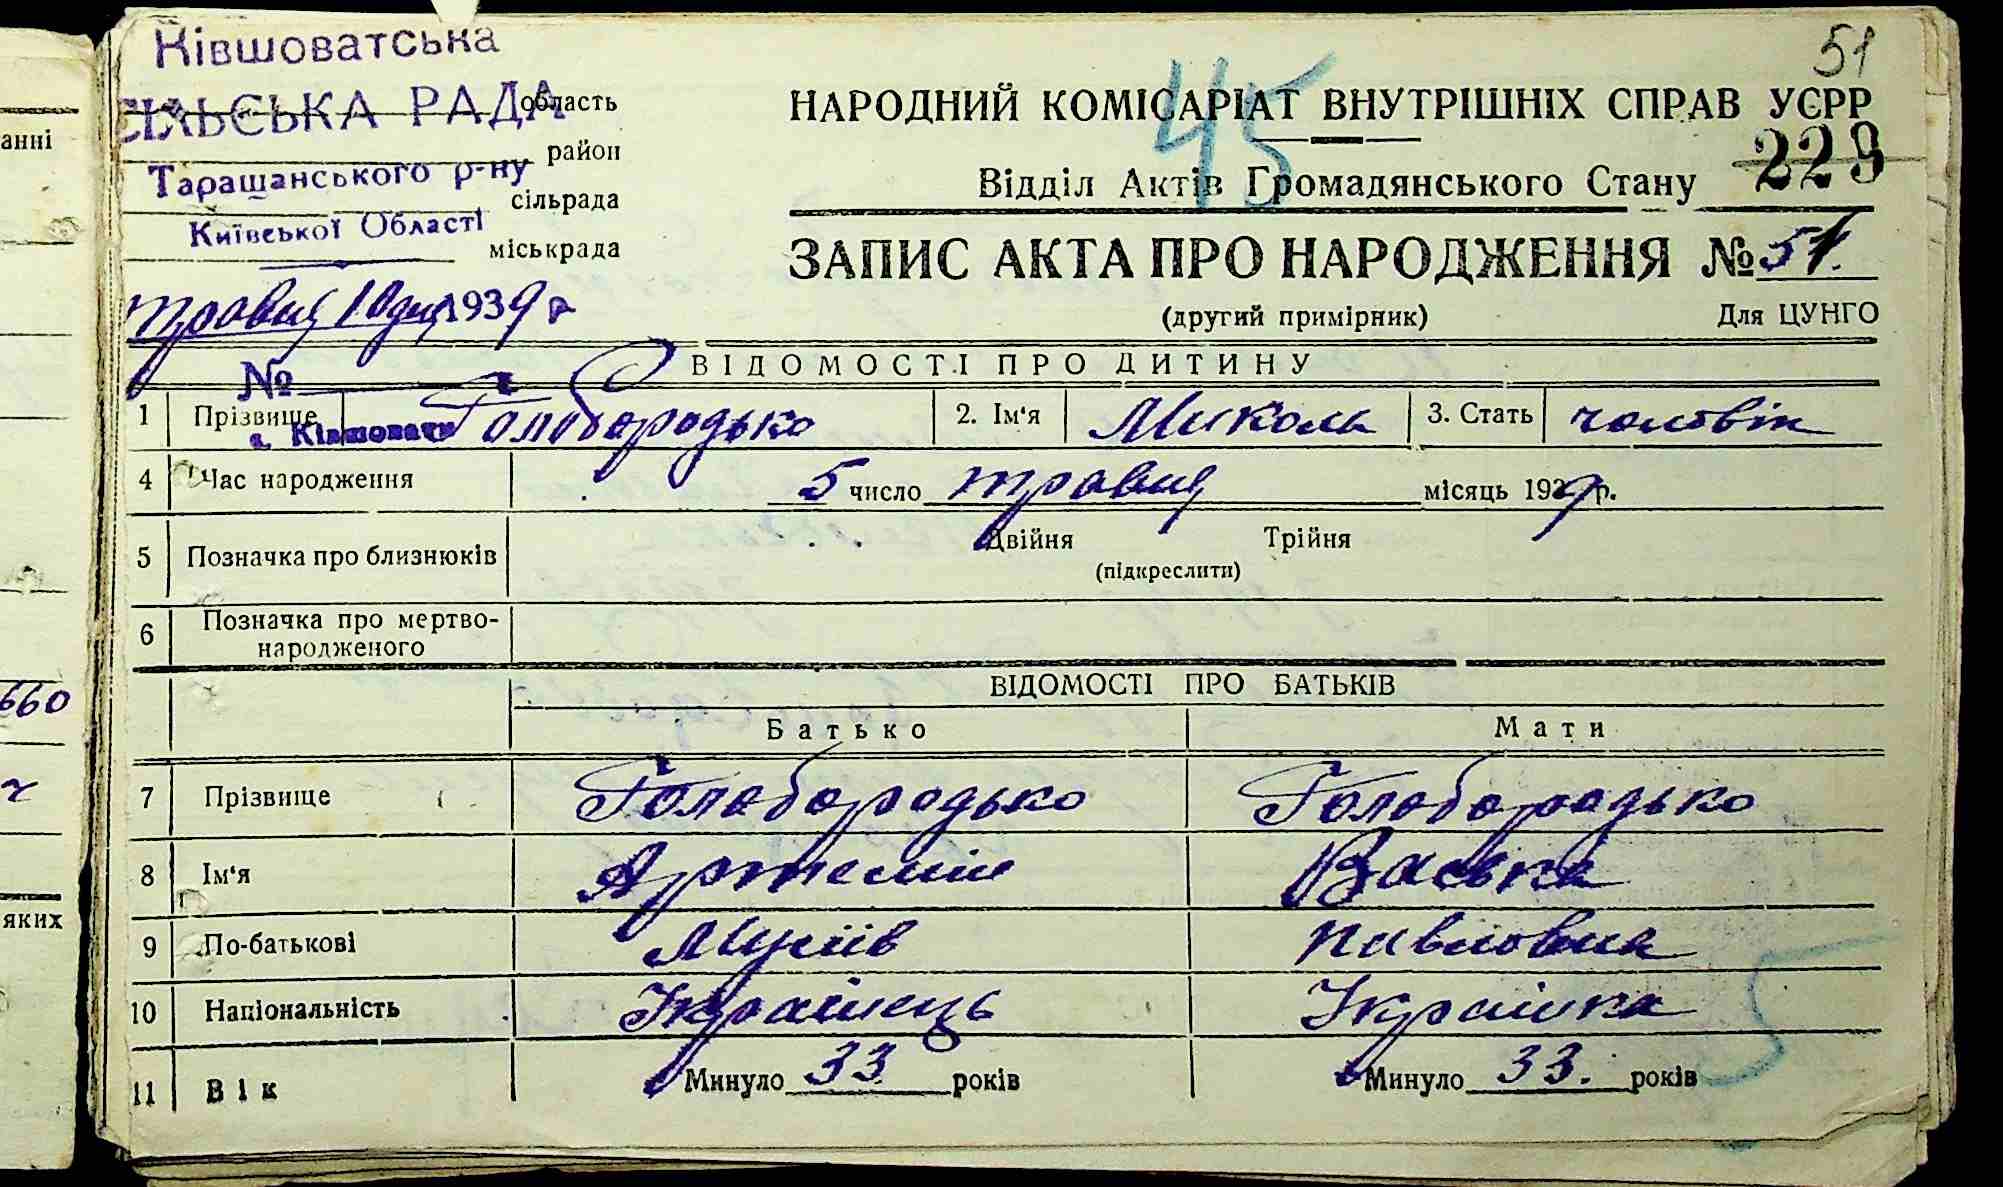 Ківшоватська
51
СІЛЬСЬКА РАДА область
НАРОДНИЙ КОМІСАРІАТ ВНУТРІШНІХ СПРАВ УСРР
45
район
Таращанського р-ну
Відділ Актів Громадянського Стану 229
сільрада
Київської Області
міськрада
ЗАПИС АКТА ПРО НАРОДЖЕННЯ № 51.
травня 10 дня 1939 р
(другий примірник) Для ЦУНГО
ВІДОМОСТІ ПРО ДИТИНУ
№
1 Прізвище Голобородько 2. Ім'я Микола 3. Стать чоловік
с. Ківшовата
4 Час народження 5 число травня місяць 1939 р.
5 Позначка про близнюків Двійня Трійня
(підкреслити)
6 Позначка про мертво-
народженого
ВІДОМОСТІ ПРО БАТЬКІВ
Батько Мати
7 Прізвище Голобородько Голобородько
8 Ім'я Артемій Васька
9 По-батькові Мусіїв Павловна
10 Національність Українець Українка
11 Вік Минуло 33 років Минуло 33. років
анні
660
ч
яких